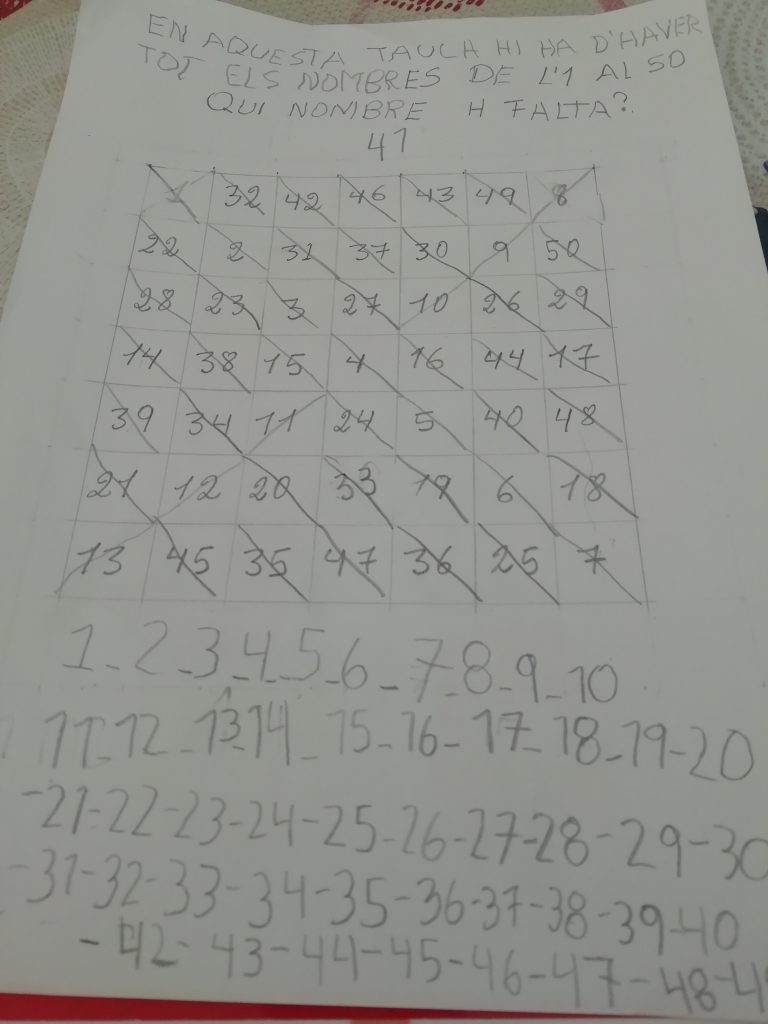 EN AQUESTA TAULA HI HA D'HAVER
TOT ELS NOMBRES DE L'1 AL 50
QUI NOMBRE H FALTA?
41
1 32 42 46 43 49 8
22 2 31 37 30 9 50
28 23 3 27 10 26 29
14 38 15 4 16 44 17
39 34 11 24 5 40 48
21 12 20 33 19 6 18
13 45 35 47 36 25 7
1-2-3-4-5-6-7-8-9-10
11-12-13-14-15-16-17-18-19-20
-21-22-23-24-25-26-27-28-29-30
-31-32-33-34-35-36-37-38-39-40
-42-43-44-45-46-47-48-4